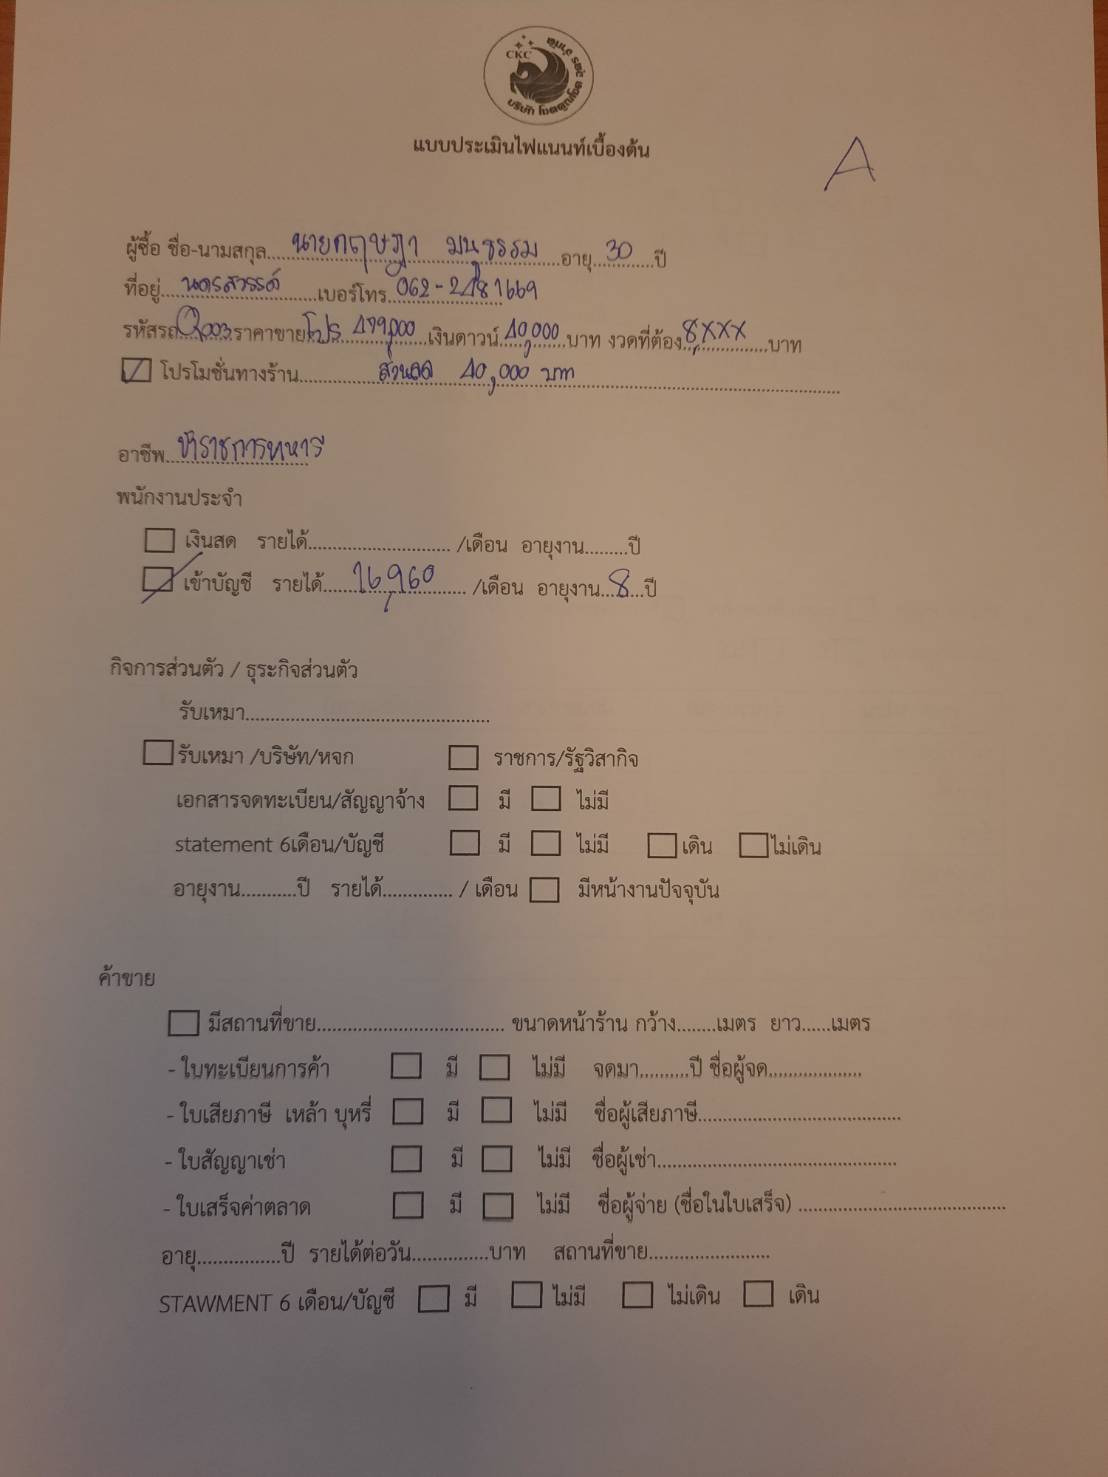 CKC
บริษัท โชคคูณโชค คาร์ จำกัด
แบบประเมินไฟแนนท์เบื้องต้น
A
ผู้ซื้อ ชื่อ-นามสกุล...นายกฤษฎา มนูธรรม...อายุ...30...ปี
ที่อยู่...นครสวรรค์...เบอร์โทร...062-2481669
รหัสรถ...Q003...ราคาขาย...โปร 499,000...เงินดาวน์...40,000...บาท งวดที่ต้อง...8,xxx...บาท
โปรโมชั่นทางร้าน...ส่วนลด 40,000 บาท
อาชีพ...ข้าราชการทหาร
พนักงานประจำ
เงินสด รายได้.............................. /เดือน อายุงาน.........ปี
เข้าบัญชี รายได้...16,960... /เดือน อายุงาน...8...ปี
กิจการส่วนตัว / ธุระกิจส่วนตัว
รับเหมา...................................................
รับเหมา /บริษัท/หจก ราชการ/รัฐวิสากิจ
เอกสารจดทะเบียน/สัญญาจ้าง มี ไม่มี
statement 6เดือน/บัญชี มี ไม่มี เดิน ไม่เดิน
อายุงาน...........ปี รายได้.............. / เดือน มีหน้างานปัจจุบัน
ค้าขาย
มีสถานที่ขาย...................................... ขนาดหน้าร้าน กว้าง........เมตร ยาว......เมตร
- ใบทะเบียนการค้า มี ไม่มี จดมา..........ปี ชื่อผู้จด...................
- ใบเสียภาษี เหล้า บุหรี่ มี ไม่มี ชื่อผู้เสียภาษี..........................................
- ใบสัญญาเช่า มี ไม่มี ชื่อผู้เช่า..................................................
- ใบเสร็จค่าตลาด มี ไม่มี ชื่อผู้จ่าย (ชื่อในใบเสร็จ) ..........................................
อายุ.................ปี รายได้ต่อวัน................บาท สถานที่ขาย.........................
STAWMENT 6 เดือน/บัญชี มี ไม่มี ไม่เดิน เดิน